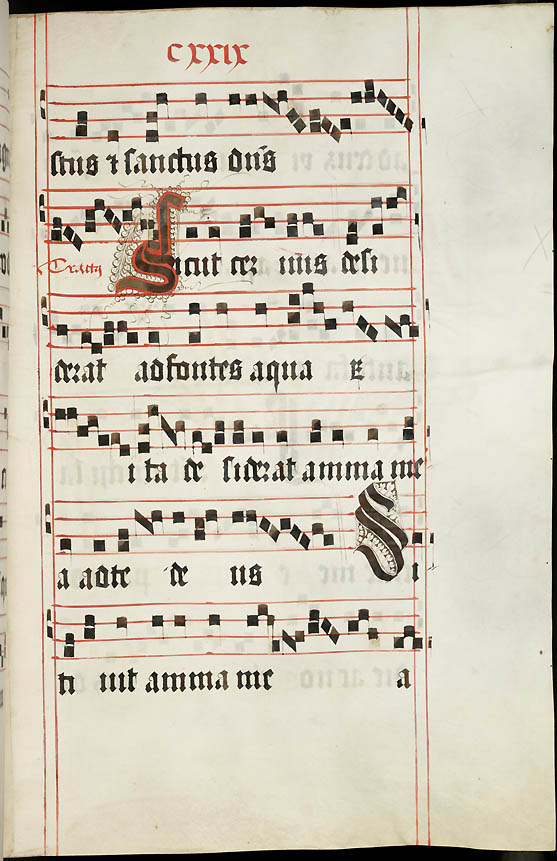 CXXIX
stus ⁊ sanctus dn̄s
Tractꝰ
Sicut cer uus desi
derat ad fontes aqua R
ita de siderat amma me
a ad te de us S i
ti uit amma me a